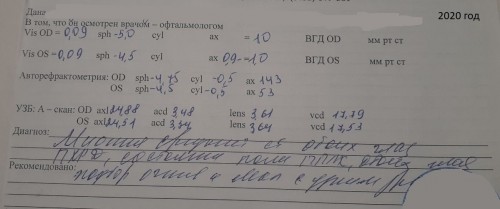 Дана
2020 год
В том, что он осмотрен врачом – офтальмологом
Vis OD = 0,09 sph -5,0 cyl ax = 1,0 ВГД OD мм рт ст
Vis OS = 0,09 sph -4,5 cyl ax 0,9-1,0 ВГД OS мм рт ст
Авторефрактометрия: OD sph -4,75 cyl -0,5 ax 143
OS sph -4,5 cyl -0,5 ax 53
УЗБ: А – скан: OD axl 24,88 acd 3,48 lens 3,61 vcd 17,79
OS axl 24,51 acd 3,34 lens 3,64 vcd 17,53
Диагноз: Миопия средней ст обоих глаз
ПХРД, состояние после ППЛК, обоих глаз
Рекомендовано: подбор очков и